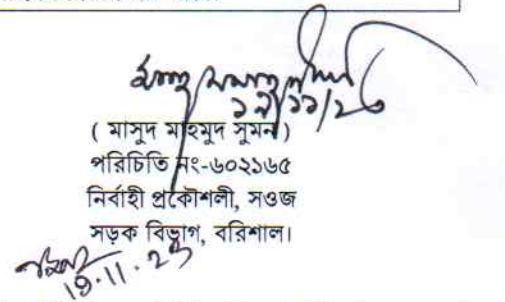 ১৯/১১/২৩
( মাসুদ মাহমুদ সুমন )
পরিচিতি নং-৬০২১৬৫
নির্বাহী প্রকৌশলী, সওজ
সড়ক বিভাগ, বরিশাল।
19.11.23